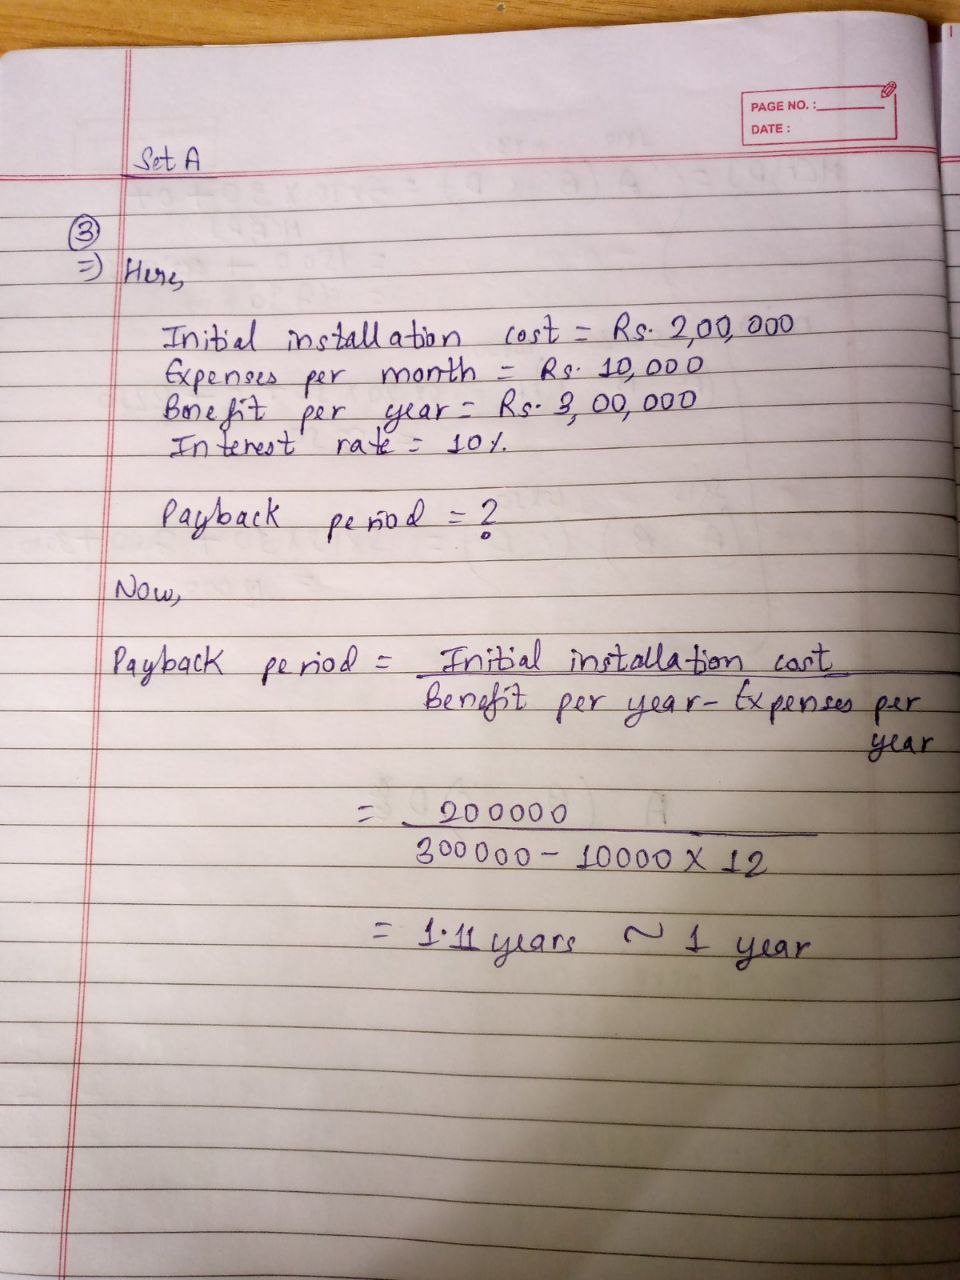 PAGE NO. :
DATE :
Set A
3
=) Here,
Initial installation cost = Rs. 2,00,000
Expenses per month = Rs. 10,000
Benefit per year = Rs. 3,00,000
Interest rate = 10%.
Payback period = ?
Now,
Payback period = Initial installation cost
Benefit per year - Expenses per
year
= 200000
300000 - 10000 X 12
= 1.11 years ~ 1 year